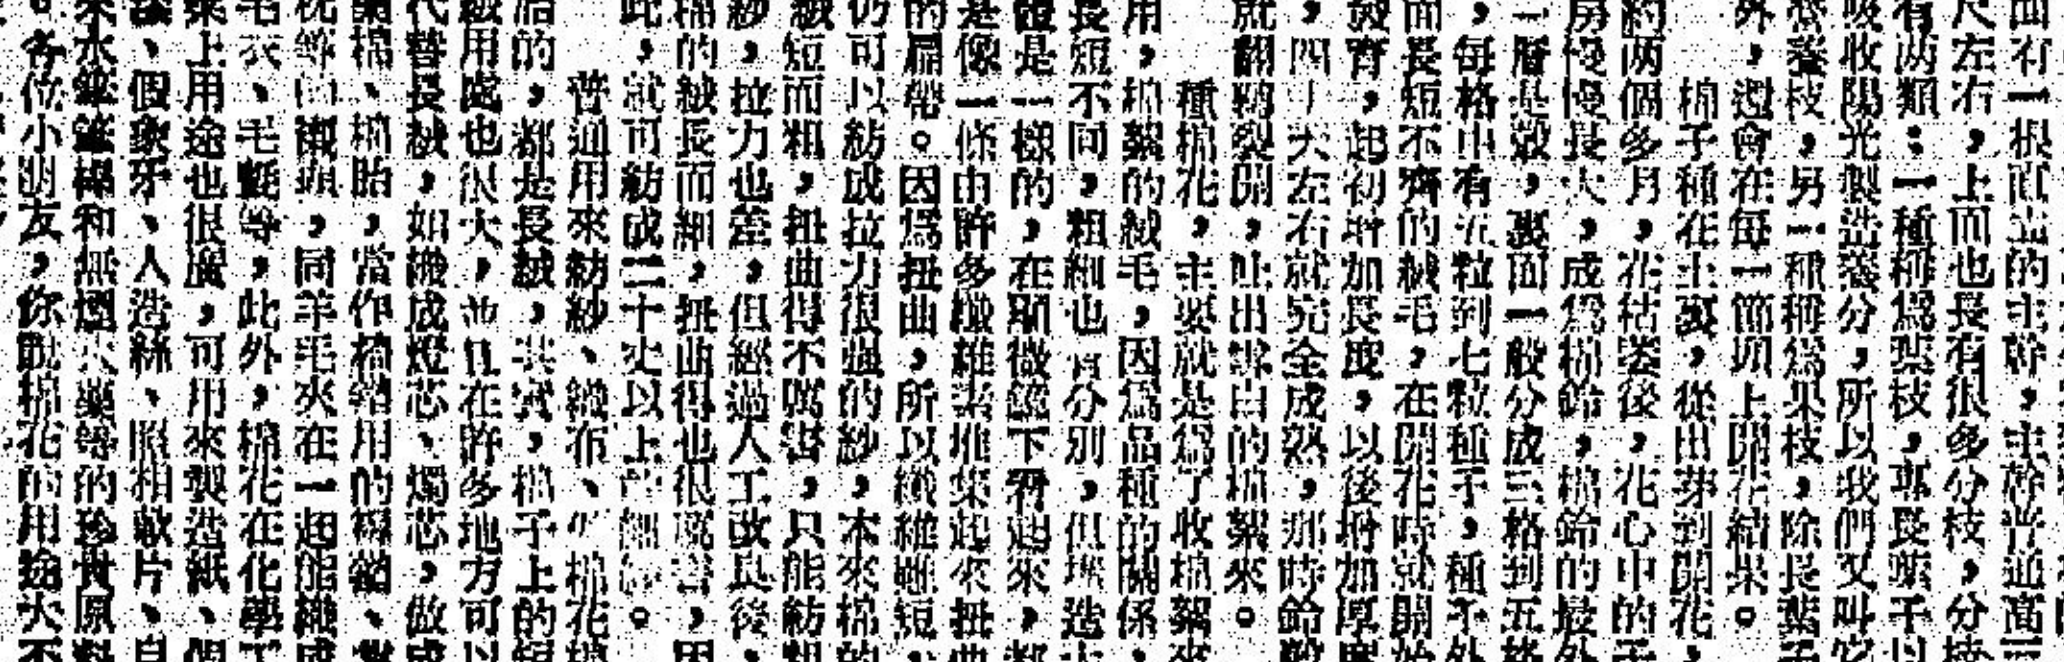 面有一根直立的主幹，主幹普通高三
尺左右，上而也長有很多分枝，分枝
有两類：一種稱爲葉枝，專長葉子以
吸收陽光製造養分，所以我們又叫它
營養枝，另一種稱爲果枝，除長葉子
外，還會在每一節項上開花結果。
棉子種在土裏，從出芽到開花，
約两個多月，花枯萎後，花心中的子
房慢慢長大，成爲棉鈴，棉鈴的最外
一層是殼，裏面一般分成三格到五格
，每格中有五粒到七粒種子，種子外
面長短不齊的絨毛，在開花時就開始
發育，起初增加長度，以後增加厚度
，四十天左右就完全成熟，那時鈴殼
就翻鞘裂開，吐出雪白的棉絮來。
種棉花，主要就是爲了收棉絮來
用，棉絮的絨毛，因爲品種的關係，
長短不同，粗細也有分別，但構造大
體是一樣的，在顯微鏡下看起來，都
是像一條由許多纖維素堆集起來扭曲
的扁帶。因爲扭曲，所以纖維雖短，
仍可以紡成拉力很強的紗，本來棉的
絨短而粗，扭曲得不厲害，只能紡粗
紗，拉力也差，但經過人工改良後，
棉的絨長而細，扭曲得也很厲害，因
此，就可紡成二十支以上的細紗。
普通用來紡紗、織布、的棉花
給的，都是長絨，其實，棉子上的短
絨用處也很大，並且在許多地方可以
代替長絨，如搬成燈芯、燭芯，做成
藥棉、棉胎，當作棉鞋用的棉鞋、當
枕等的襯頭，同羊毛夾在一起能織成
毛衣、毛氈等，此外，棉花在化學工
業上用途也很廣，可用來製造紙、假
漆、假象牙、人造絲、照相軟片、自
來水筆筆桿和無煙火藥等的珍貴原料
。各位小朋友，你說棉花的用途大不